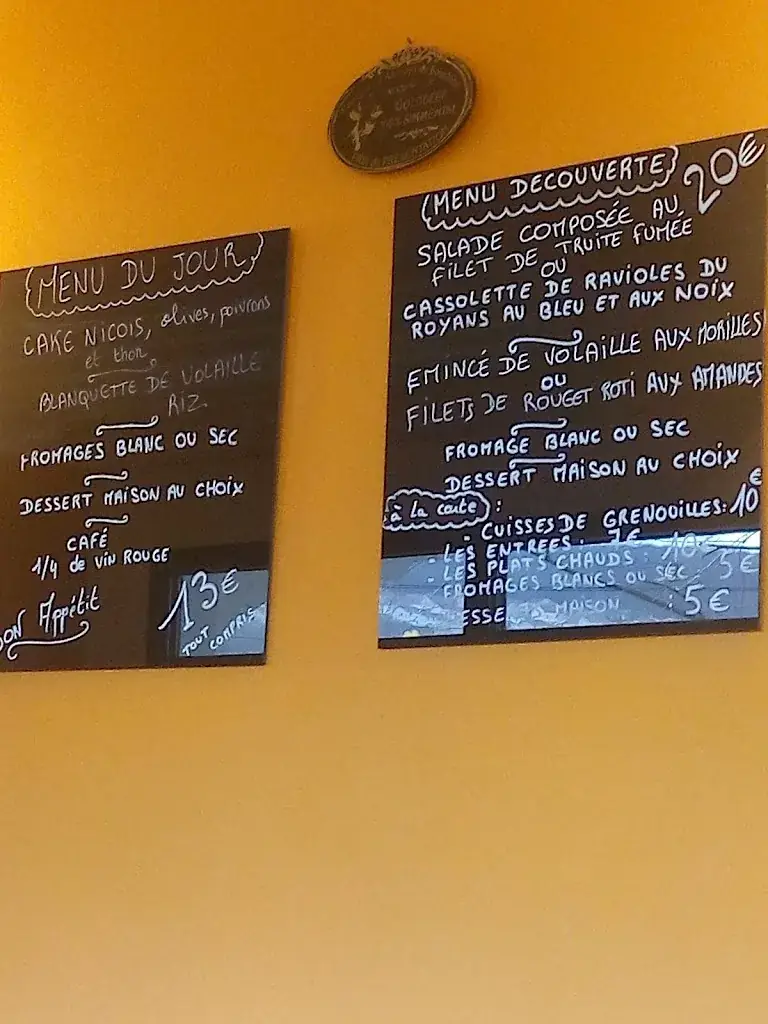 MENU DU JOUR
CAKE NICOIS, olives, poivrons
et thon
BLANQUETTE DE VOLAILLE
RIZ
FROMAGES BLANC OU SEC
DESSERT MAISON AU CHOIX
CAFÉ
1/4 de VIN ROUGE
BON Appétit
13€
TOUT COMPRIS
MENU DECOUVERTE 20€
SALADE COMPOSÉE AU
FILET DE TRUITE FUMÉE
OU
CASSOLETTE DE RAVIOLES DU
ROYANS AU BLEU ET AUX NOIX
EMINCÉ DE VOLAILLE AUX MORILLES
OU
FILETS DE ROUGET ROTI AUX AMANDES
FROMAGE BLANC OU SEC
DESSERT MAISON AU CHOIX
à la carte :
- CUISSES DE GRENOUILLES: 10€
- LES ENTREES : 7€
- LES PLATS CHAUDS : 10€
- FROMAGES BLANCS OU SEC 5€
MAISON : 5€